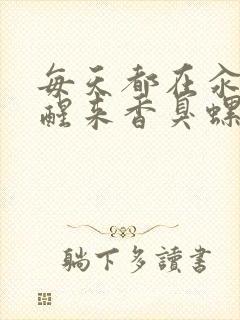 每天都在汆
醒来香臭螺
躺下多讀書